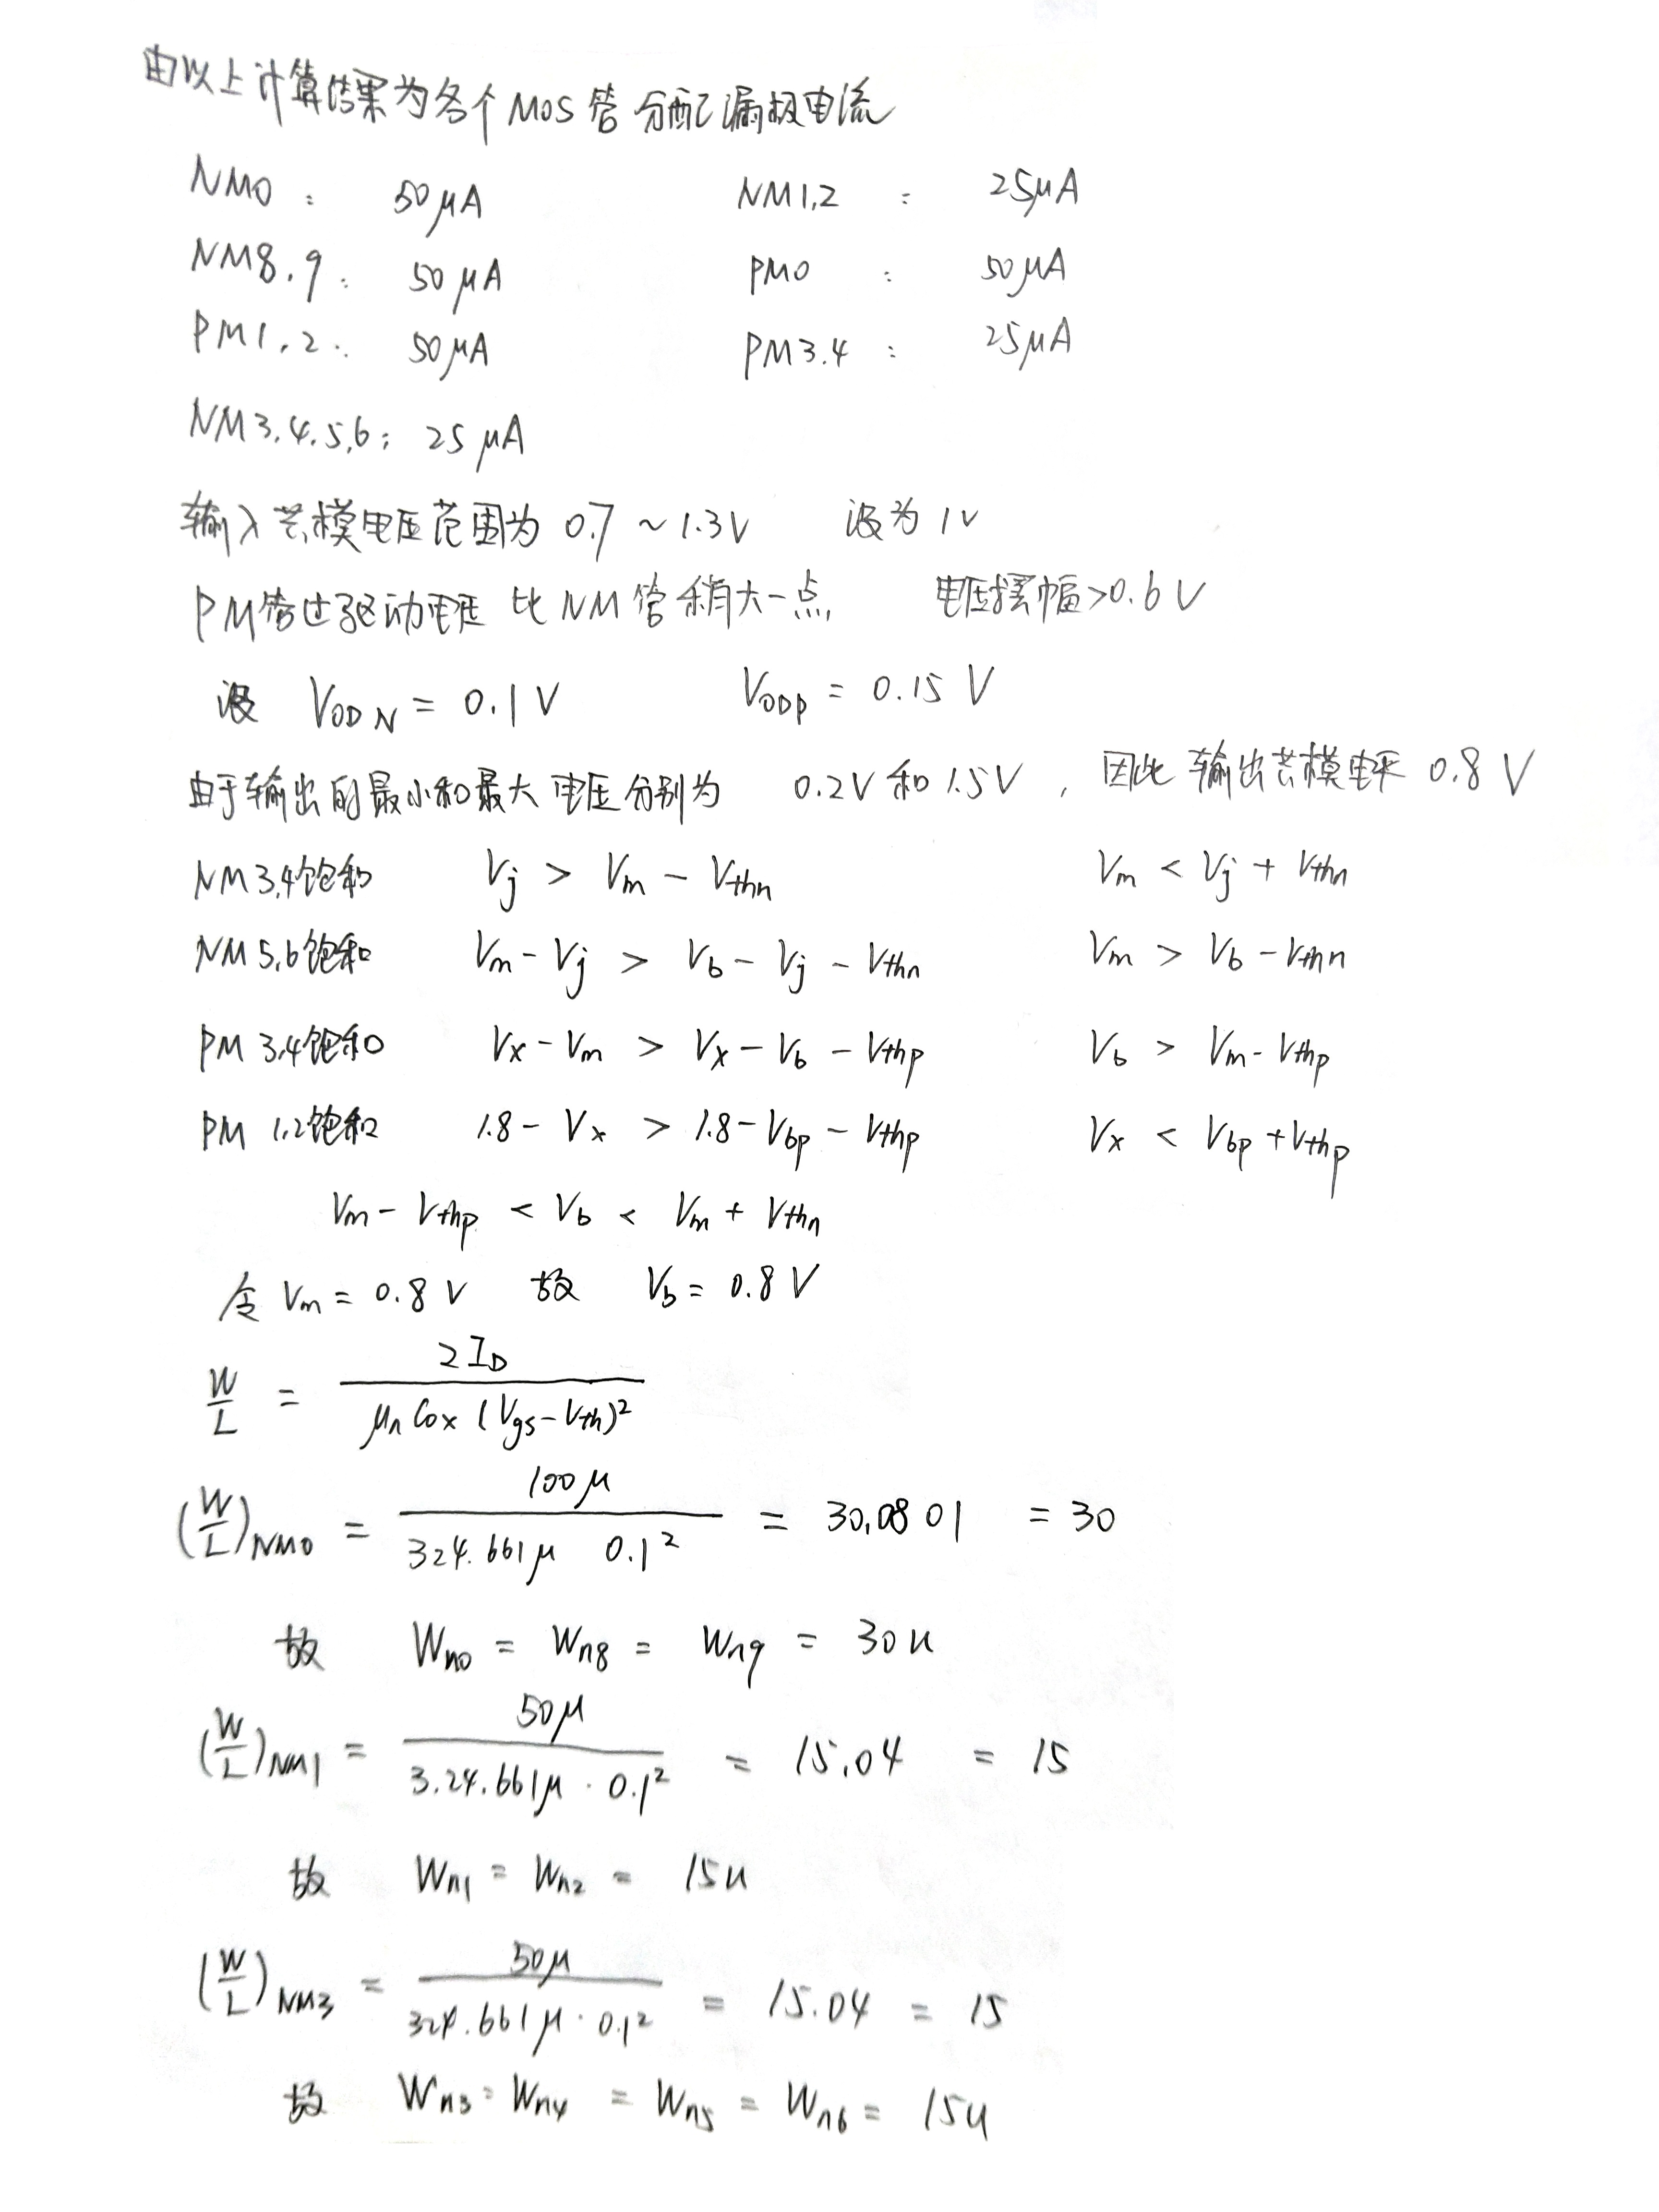 由以上计算结果为各个MOS管分配漏极电流
NM0 : 50μA NM1,2 : 25μA
NM8.9: 50μA PM0 : 50μA
PM1.2: 50μA PM3.4 : 25μA
NM3.4.5,6: 25μA
输入共模电压范围为 0.7 ~ 1.3V 设为 1V
PM管过驱动电压 比 NM 管稍大一点, 电压摆幅>0.6V
设 VODN = 0.1V VODP = 0.15V
由于输出的最小和最大电压分别为 0.2V和1.5V, 因此输出共模电平 0.8V
NM3,4饱和 Vj > Vm - Vthn Vm < Vj + Vthn
NM5,6饱和 Vm - Vj > Vb - Vj - Vthn Vm > Vb - Vthn
PM3,4饱和 Vx - Vm > Vx - Vb - Vthp Vb > Vm - Vthp
PM 1,2饱和 1.8 - Vx > 1.8 - Vbp - Vthp Vx < Vbp + Vthp
Vm - Vthp < Vb < Vm + Vthn
令 Vm = 0.8V 故 Vb = 0.8V
W/L = 2ID / μnCox(Vgs-Vth)²
(W/L)NM0 = 100μ / 324.661μ 0.1² = 30.0801 = 30
故 Wn0 = Wn8 = Wn9 = 30u
(W/L)NM1 = 50μ / 3.24.661μ · 0.1² = 15.04 = 15
故 Wn1 = Wn2 = 15u
(W/L)NM3 = 50μ / 324.661μ · 0.1² = 15.04 = 15
故 Wn3 = Wn4 = Wn5 = Wn6 = 15u